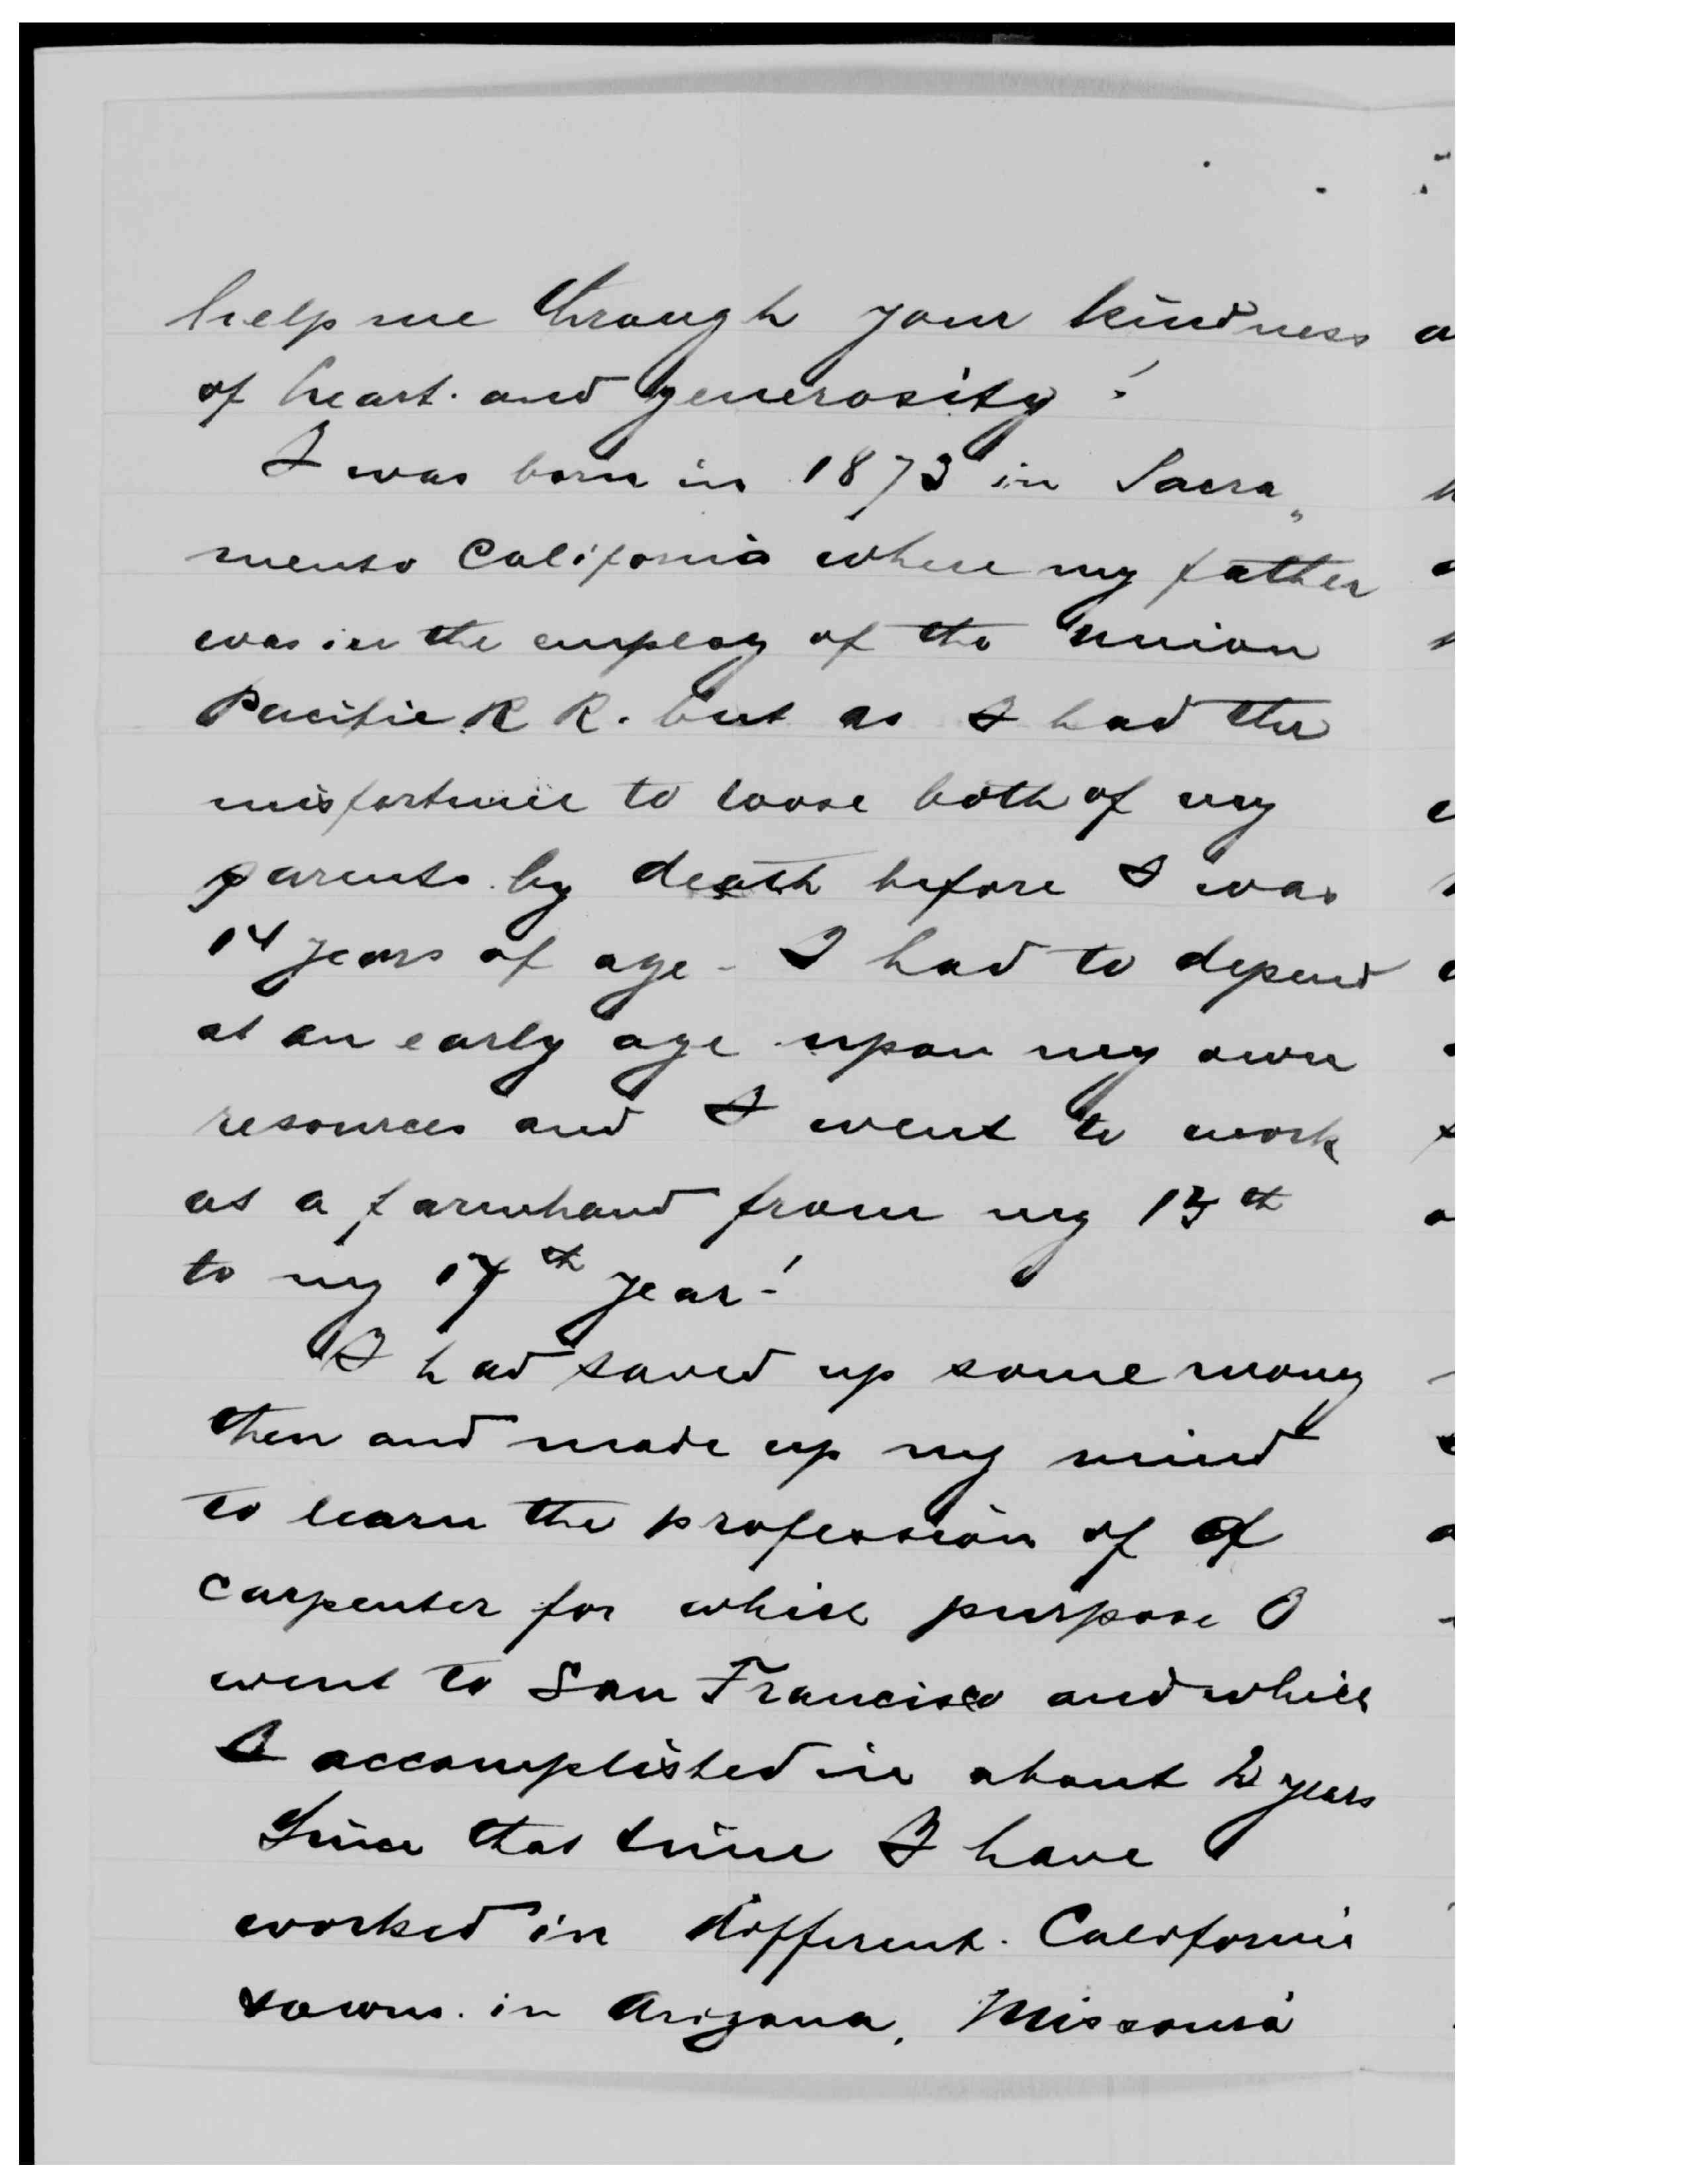 help me through your kindness
of heart. and generosity!
I was born in 1873 in Sacra„
mento California where my father
was in the employ of the Union
Pacific R R. but as I had the
misfortune to loose both of my
parents by death before I was
14 years of age - I had to depend
at an early age upon my own
resources and I went to work
as a farmhand from my 13th
to my 17th year!
I had saved up some money
then and made up my mind
to learn the profession of a
carpenter for which purpose I
went to San Francisco and which
I accomplished in about 2 years
Since that time I have
worked in different. California
towns. in Arizona, Missouri